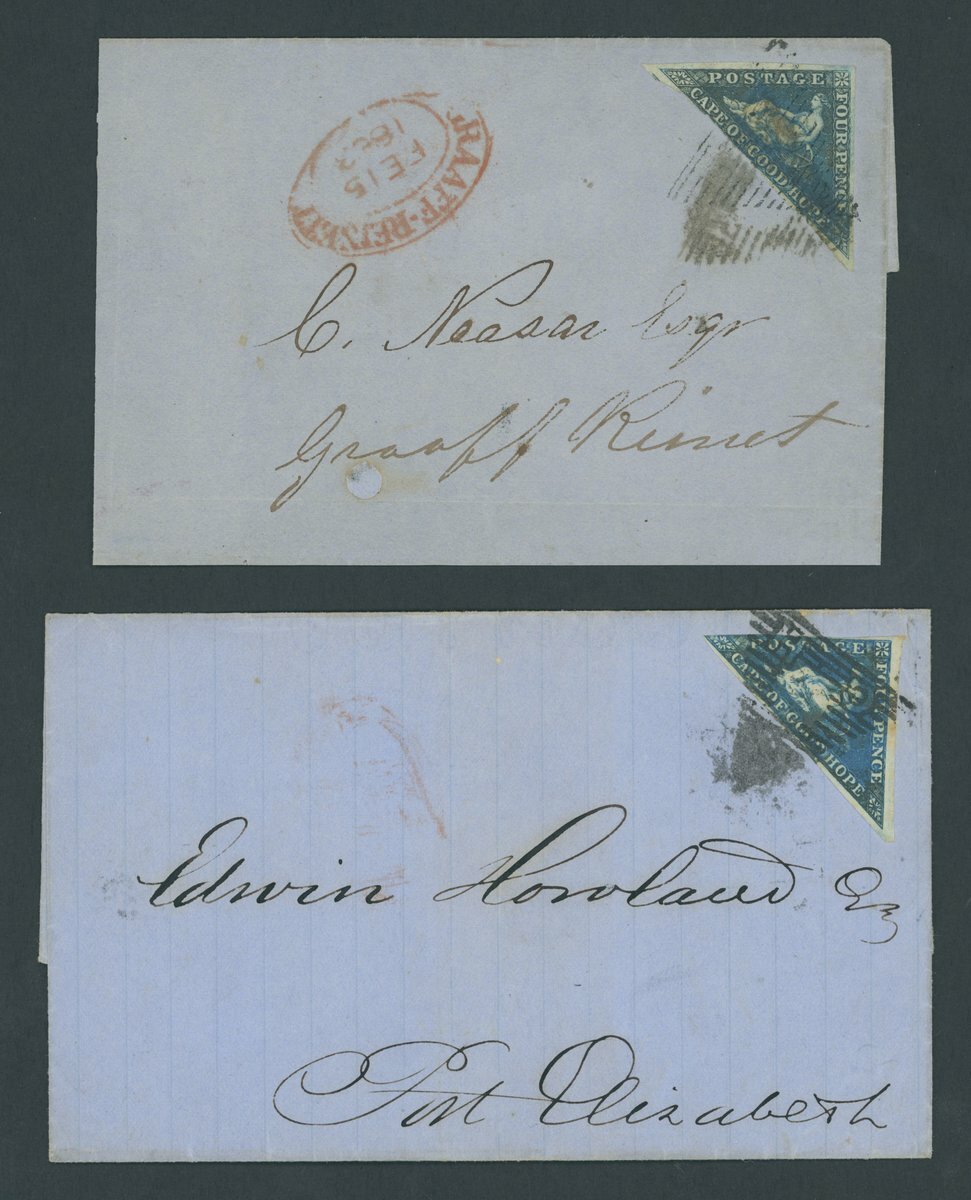 GRAAFF-REINET
FE 15
POSTAGE
CAPE OF GOOD HOPE
FOUR PENCE
C. Neasar Esqr
Graaff Reinet
POSTAGE
CAPE OF GOOD HOPE
FOUR PENCE
Edwin Howland Esq
Port Elizabeth